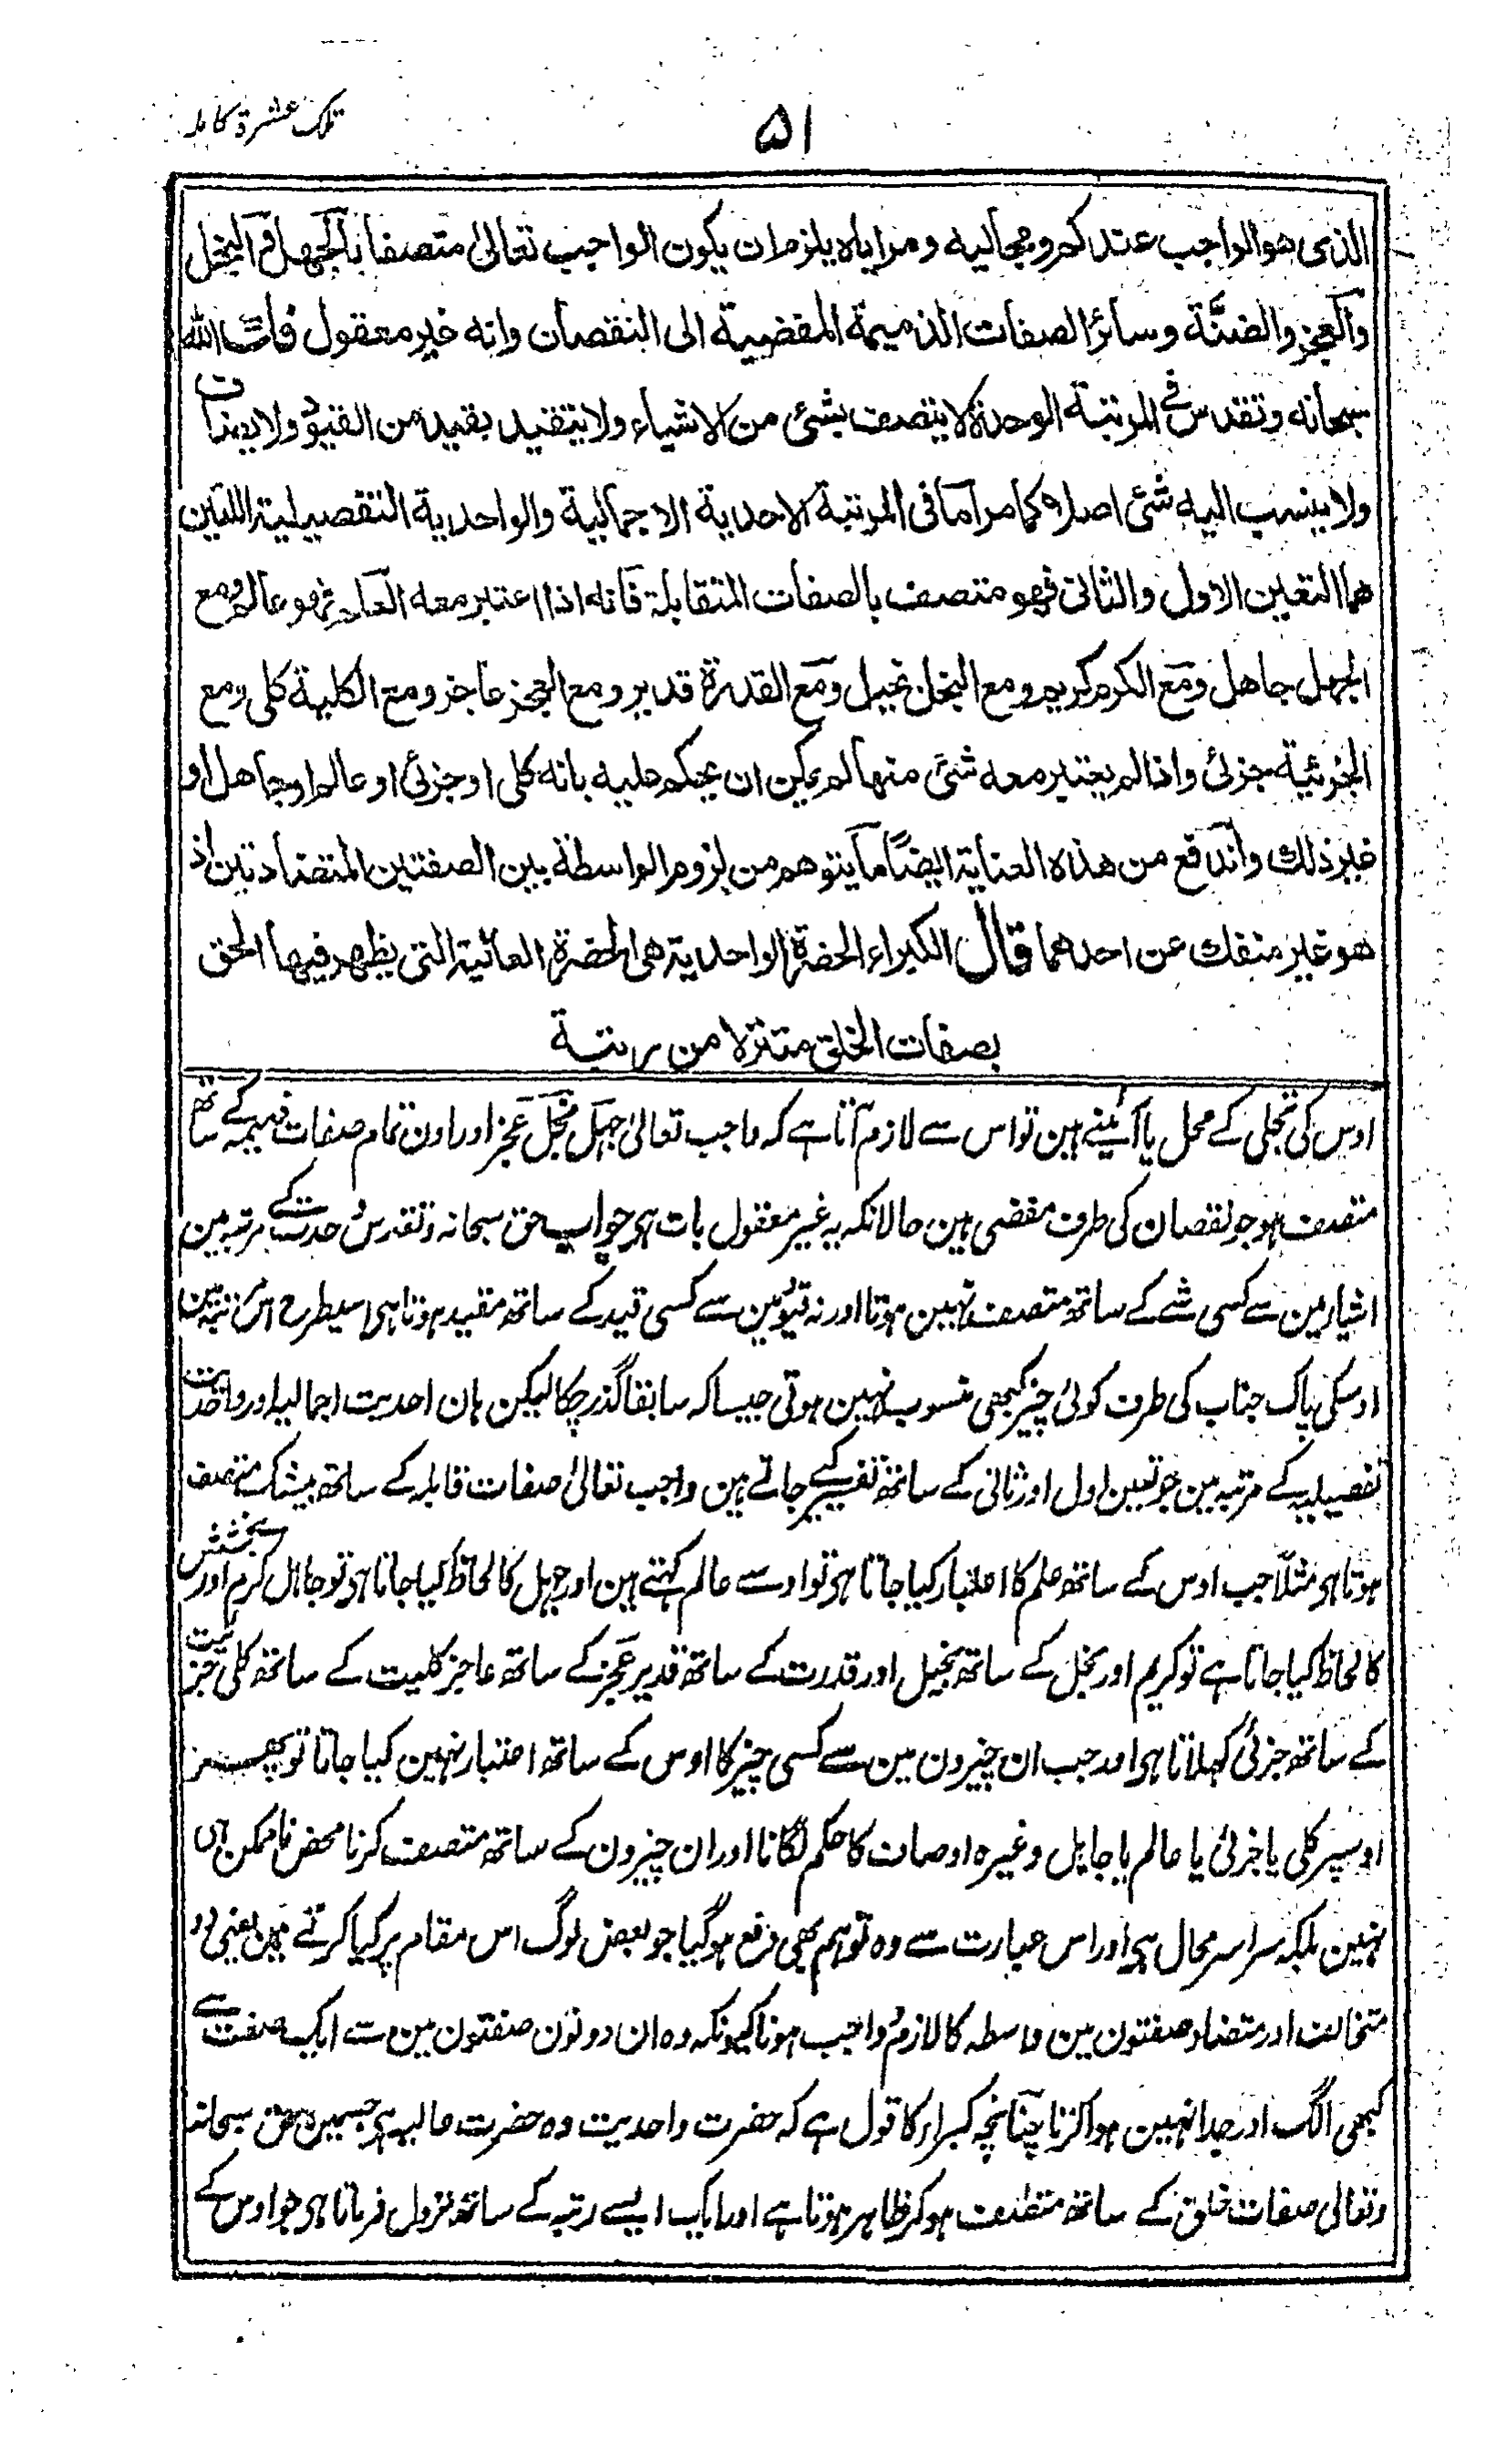 تلک عشرۃ کاملہ
۵۱
الذی هو الواجب عندکم ومجالیه ومرایاه یلزم ان یکون الواجب تعالیٰ متصفا بالجهل والبخل
والعجز والضنَّة وسائر الصفات الذمیمة المفضیة الی النقصان وانه غیر معقول قلت الله
سبحانه وتقدس فی المرتبة الوحدة لا یتصف بشئ من الاشیاء ولا یتقید بقید من القیود ولا یضاف
ولا ینسب الیه شئ اصلا کما مر اما فی المرتبة الاحدیة الاجمالیة والواحدیة التفصیلیة اللتین
هما التعین الاول والثانی فهو متصف بالصفات المتقابلة فانه اذا اعتبر معه العلم فهو عالم ومع
الجهل جاهل ومع الکرم کریم ومع البخل بخیل ومع القدرة قدیر ومع العجز عاجز ومع الکلیة کلی ومع
الجزئیة جزئی واذا لم یعتبر معه شئ منها لم یکن ان یحکم علیه بانه کلی او جزئی او عالم او جاهل او
غیر ذلك واندفع من هذه العنایة ایضًا ما یتوهم من لزوم الواسطة بین الصفتین المتضادتین اذ
هو غیر منفك عن احدهما قال الکبراء الحضرة الواحدیة هی الحضرة العالیة التی یظهر فیها الحق
بصفات الخلق متنزلا من رتبة
اوس کی تجلی کے محل یا آئینے ہین تو اس سے لازم آتا ہے کہ واجب تعالیٰ جہل بخل عجز اور اون تمام صفات ذمیمہ کے ساتھ
متصف ہو جو نقصان کی طرف مفضی ہین حالانکہ یہ غیر معقول بات ہی جواب حق سبحانہ وتقدس وحدت کے مرتبہ مین
اشیا مین سے کسی شے کے ساتھ متصف نہین ہوتا اور نہ قیود مین سے کسی قید کے ساتھ مقید ہوتا ہی اسیطرح اس مرتبہ مین
اوسکی پاک جناب کی طرف کوئی چیز کبھی منسوب نہین ہوتی جیسا کہ سابقا گذر چکا لیکن ہان احدیت اجمالیہ اور واحدیت
تفصیلیہ کے مرتبہ مین جو تعین اول اور ثانی کے ساتھ تفسیر کیے جاتے ہین واجب تعالیٰ صفات قابلہ کے ساتھ بیشک متصف
ہوتا ہی مثلاً جب اوس کے ساتھ علم کا اعتبار کیا جاتا ہی تو اوسے عالم کہتے ہین اور جہل کا لحاظ کیا جاتا ہی تو جاہل کرم اور بخشش
کا لحاظ کیا جاتا ہے تو کریم اور بخل کے ساتھ بخیل اور قدرت کے ساتھ قدیر عجز کے ساتھ عاجز کلیت کے ساتھ کلی جزئیت
کے ساتھ جزئی کہلاتا ہی اور جب ان چیزون مین سے کسی چیز کا اوس کے ساتھ اعتبار نہین کیا جاتا تو پھر
اوسپر کلی یا جزئی یا عالم یا جاہل وغیرہ اوصاف کا حکم لگانا اور ان چیزون کے ساتھ متصف کرنا محض ناممکن ہی
نہین بلکہ سراسر محال ہی اور اس عبارت سے وہ توہم بھی رفع ہوگیا جو بعض لوگ اس مقام پر کیا کرتے ہین یعنی دو
متخالف اور متضاد صفتون مین واسطہ کا لازم و واجب ہونا کیونکہ وہ ان دونون صفتون مین سے ایک صفت سے
کبھی الگ اور جدا نہین ہوا کرتا چنانچہ کبراء کا قول ہے کہ حضرت واحدیت وہ حضرت عالیہ ہی جسمین حق سبحانہ
وتعالی صفات خلق کے ساتھ متصف ہو کر ظاہر ہوتا ہے اور ایک ایسے رتبہ کے ساتھ نزول فرماتا ہی جو اوس کے